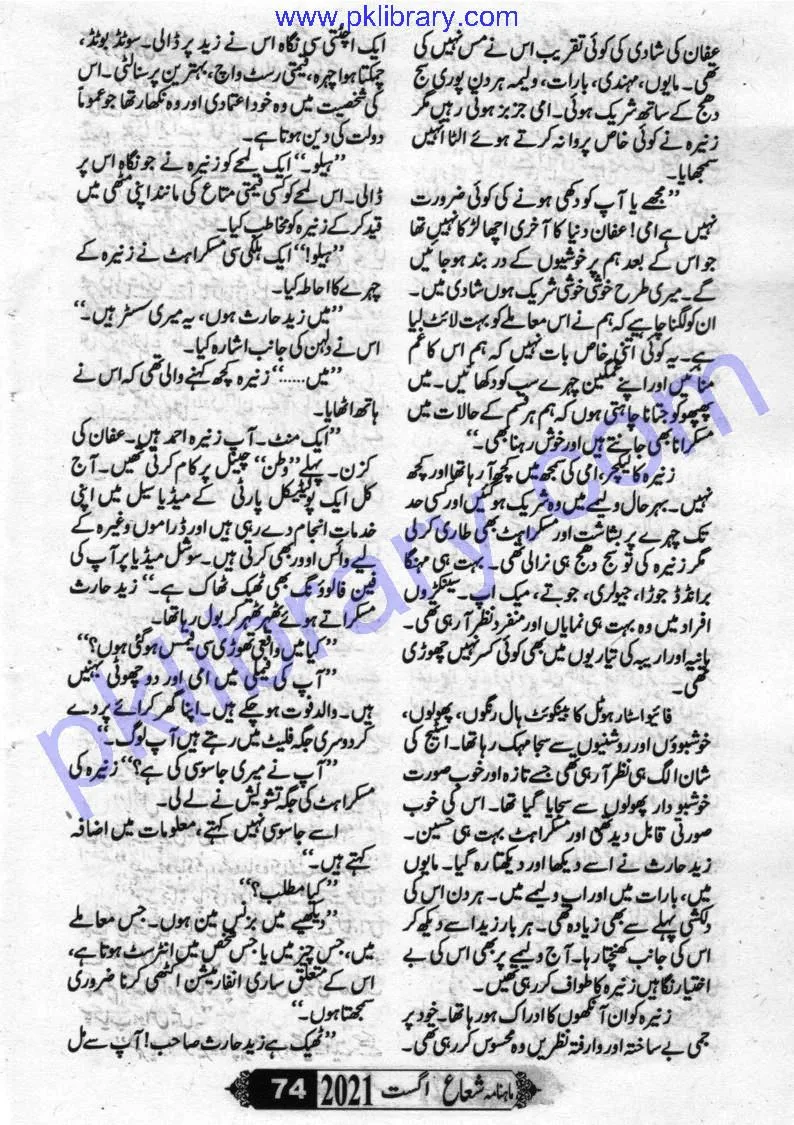 www.pklibrary.com
عفان کی شادی کی کوئی تقریب اس نے مس نہیں کی
تھی۔ مایوں، مہندی، بارات، ولیمہ ہر دن پوری سج
دھج کے ساتھ شریک ہوئی۔ امی جزبز ہوتی رہیں مگر
زنیرہ نے کوئی خاص پروا نہ کرتے ہوئے الٹا انہیں
سمجھایا۔
”مجھے یا آپ کو دکھی ہونے کی کوئی ضرورت
نہیں ہے امی! عفان دنیا کا آخری اچھا لڑکا نہیں تھا
جو اس کے بعد ہم پر خوشیوں کے در بند ہو جائیں
گے۔ میری طرح خوشی خوشی شریک ہوں شادی میں۔
ان کو لگنا چاہیے کہ ہم نے اس معاملے کو بہت لائٹ لیا
ہے۔ یہ کوئی اتنی خاص بات نہیں کہ ہم اس کا غم
منائیں اور اپنے غمگین چہرے سب کو دکھائیں۔ میں
پھپھو کو جتانا چاہتی ہوں کہ ہم ہر قسم کے حالات میں
مسکرانا بھی جانتے ہیں اور خوش رہنا بھی۔“
زنیرہ کا لیکچر، امی کی سمجھ میں کچھ آ رہا تھا اور کچھ
نہیں۔ بہرحال ولیمے میں وہ شریک ہو گئیں اور کسی حد
تک چہرے پر بشاشت اور مسکراہٹ بھی طاری کر لی
مگر زنیرہ کی تو سج دھج ہی نرالی تھی۔ بہت ہی مہنگا
برانڈڈ جوڑا، جیولری، جوتے، میک اپ۔ سینکڑوں
افراد میں وہ بہت ہی نمایاں اور منفرد نظر آ رہی تھی۔
ہانیہ اور اریبہ کی تیاریوں میں بھی کوئی کسر نہیں چھوڑی
تھی۔
فائیو اسٹار ہوٹل کا بینکوئٹ ہال رنگوں، پھولوں،
خوشبوؤں اور روشنیوں سے سجا مہک رہا تھا۔ اسٹیج کی
شان الگ ہی نظر آ رہی تھی جسے تازہ اور خوب صورت
خوشبودار پھولوں سے سجایا گیا تھا۔ اس کی خوب
صورتی قابل دید تھی اور مسکراہٹ بہت ہی حسین۔
زید حارث نے اسے دیکھا اور دیکھتا رہ گیا۔ مایوں
میں، بارات میں اور اب ولیمے میں۔ ہر دن اس کی
دلکشی پہلے سے بھی زیادہ تھی۔ ہر بار زید اسے دیکھ کر
اس کی جانب کھنچتا رہا۔ آج ولیمے پر بھی اس کی بے
اختیار نگاہیں زنیرہ کا طواف کر رہی تھیں۔
زنیرہ کو ان آنکھوں کا ادراک ہو رہا تھا۔ خود پر
جمی بے ساختہ اور وارفتہ نظریں وہ محسوس کر رہی تھی۔
ایک اچٹتی سی نگاہ اس نے زید پر ڈالی۔ سوٹڈ بوٹڈ،
چمکتا ہوا چہرہ، قیمتی رسٹ واچ، بہترین پرسنالٹی۔ اس
کی شخصیت میں وہ خود اعتمادی اور وہ نکھار تھا جو عموماً
دولت کی دین ہوتا ہے۔
”ہیلو۔“ ایک لمحے کو زنیرہ نے جو نگاہ اس پر
ڈالی۔ اس لمحے کو کسی قیمتی متاع کی مانند اپنی مٹھی میں
قید کر کے زنیرہ کو مخاطب کیا۔
”ہیلو!“ ایک ہلکی سی مسکراہٹ نے زنیرہ کے
چہرے کا احاطہ کیا۔
”میں زید حارث ہوں، یہ میری سسٹر ہیں۔“
اس نے دلہن کی جانب اشارہ کیا۔
”میں......“ زنیرہ کچھ کہنے والی تھی کہ اس نے
ہاتھ اٹھایا۔
”ایک منٹ۔ آپ زنیرہ احمد ہیں۔ عفان کی
کزن۔ پہلے ”وطن“ چینل پر کام کرتی تھیں۔ آج
کل ایک پولیٹیکل پارٹی کے میڈیا سیل میں اپنی
خدمات انجام دے رہی ہیں اور ڈراموں وغیرہ کے
لیے وائس اوور بھی کرتی ہیں۔ سوشل میڈیا پر آپ کی
فین فالوونگ بھی ٹھیک ٹھاک ہے۔“ زید حارث
مسکراتے ہوئے ٹھہر ٹھہر کر بول رہا تھا۔
”کیا میں واقعی تھوڑی سی فیمس ہو گئی ہوں؟“
”آپ کی فیملی میں امی اور دو چھوٹی بہنیں
ہیں۔ والد فوت ہو چکے ہیں۔ اپنا گھر کرائے پر دے
کر دوسری جگہ فلیٹ میں رہتے ہیں آپ لوگ۔“
”آپ نے میری جاسوسی کی ہے؟“ زنیرہ کی
مسکراہٹ کی جگہ تشویش نے لے لی۔
اسے جاسوسی نہیں کہتے، معلومات میں اضافہ
کہتے ہیں۔“
”کیا مطلب؟“
”دیکھیے میں بزنس مین ہوں۔ جس معاملے
میں، جس چیز میں یا جس شخص میں انٹرسٹ ہوتا ہے،
اس کے متعلق ساری انفارمیشن اکٹھی کرنا ضروری
سمجھتا ہوں۔“
”ٹھیک ہے زید حارث صاحب! آپ سے مل
ماہنامہ شعاع اگست 2021 74
pklibrary.com